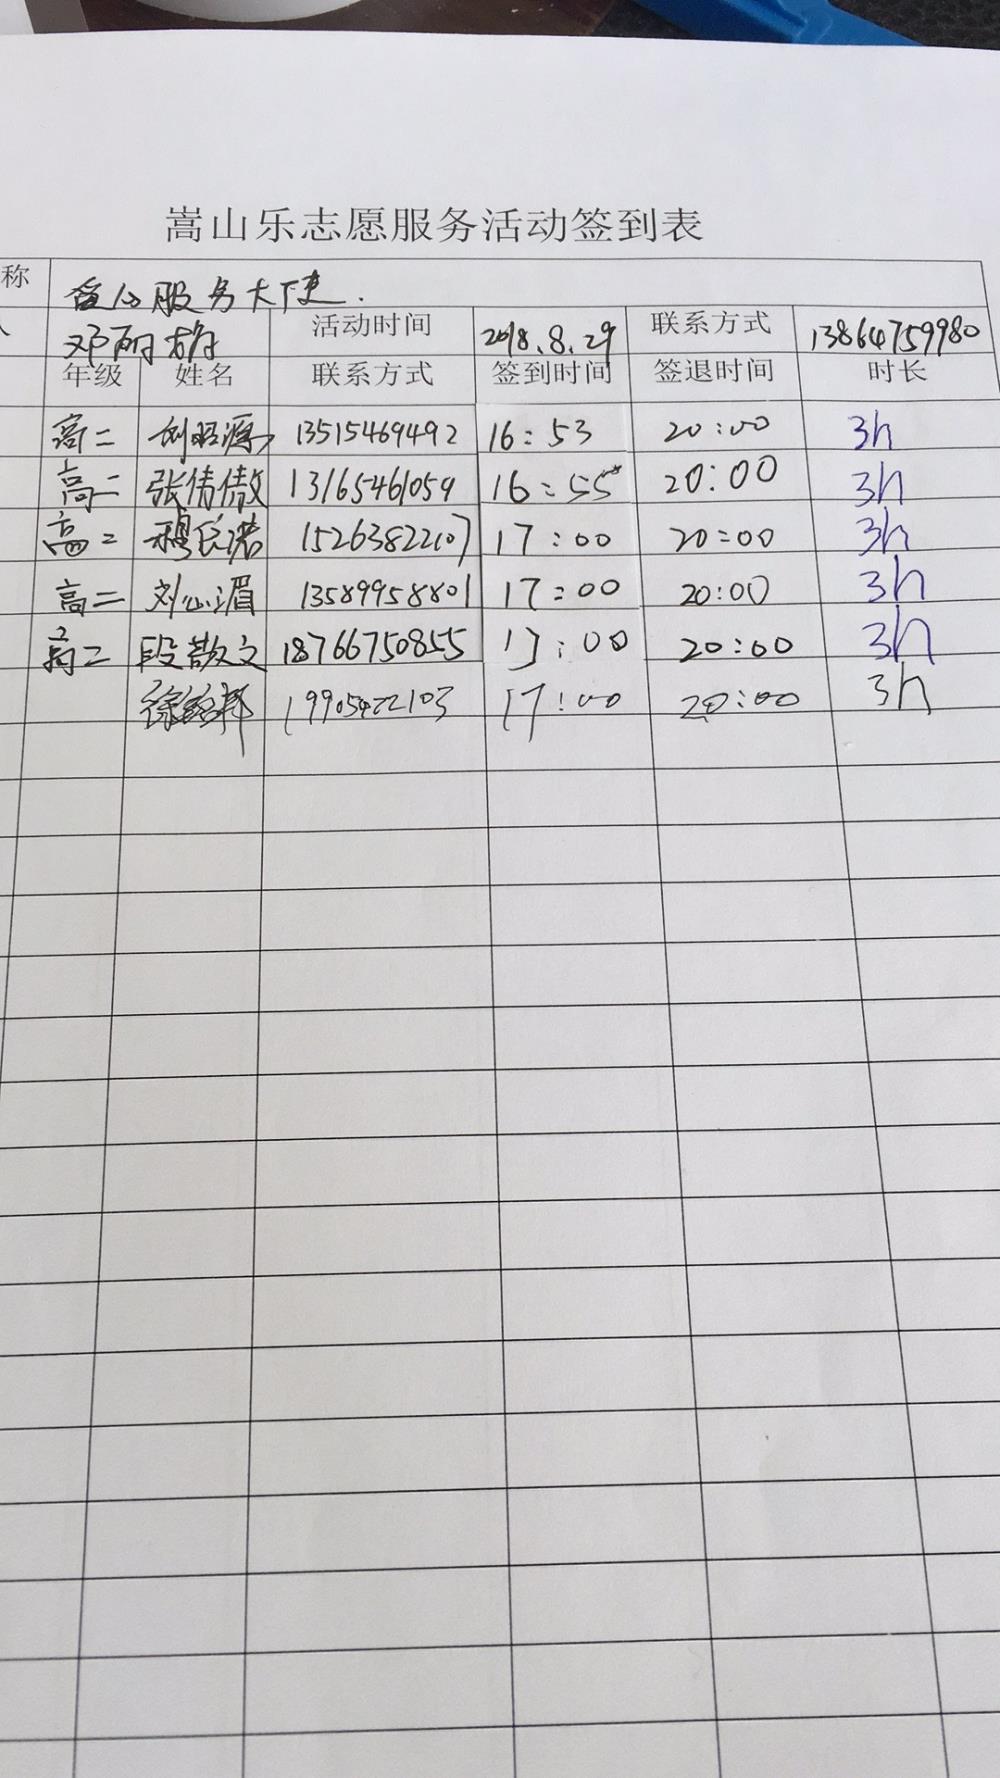 嵩山乐志愿服务活动签到表
称 服务大
邓 活动时间 2018.8.29 联系方式 13864759980
年级 姓名 联系方式 签到时间 签退时间 时长
高二 13515469492 16:53 20:00 3h
高二 张倩傲 13165461059 16:55 20:00 3h
高二 穆 15263822107 17:00 20:00 3h
高二 刘心湄 13589958801 17:00 20:00 3h
高二 段散文 18766750855 17:00 20:00 3h
徐 19905422103 17:00 20:00 3h